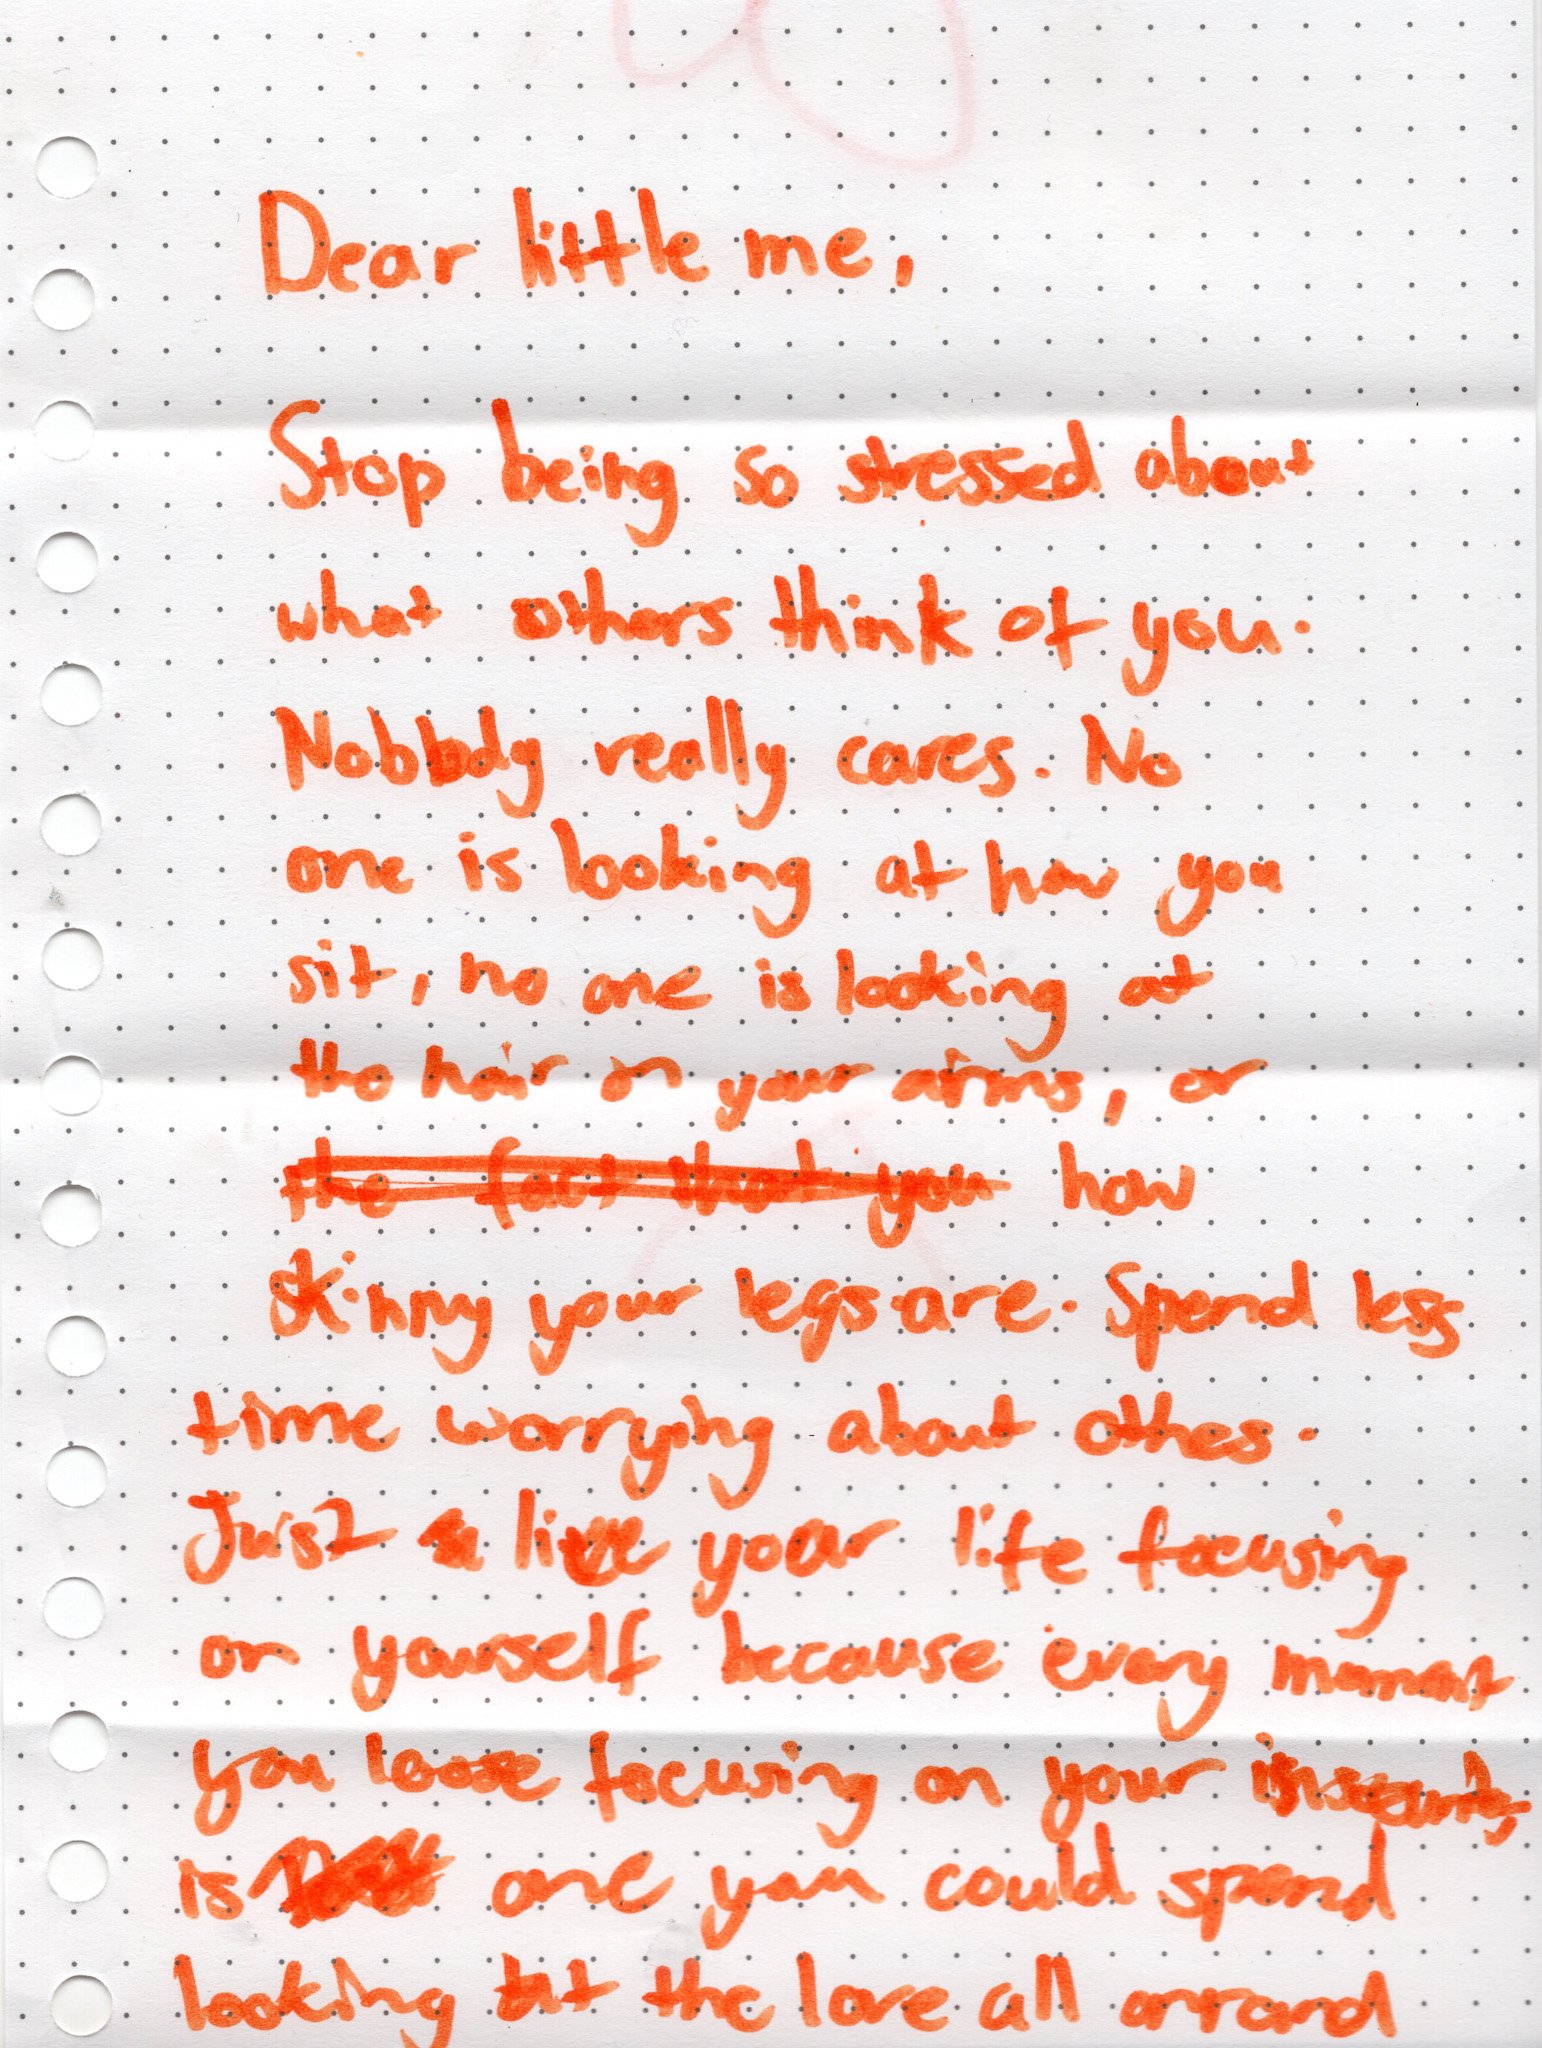 Dear little me,
Stop being so stressed about
what others think of you.
Nobbdy really cares. No
one is looking at how you
sit, no one is looking at
the hair on your arms, or
the fact that you how
skinny your legs are. Spend less
time worrying about othes.
Just live your life focusing
on yourself because every moment
you loose focusing on your
is one you could spend
looking at the love all around